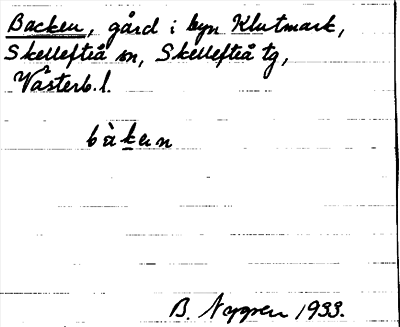 Backen, gård i byn Klutmark,
Skellefteå sn, Skellefteå tg,
Västerb. l.
bàken
B. Nygren 1933.